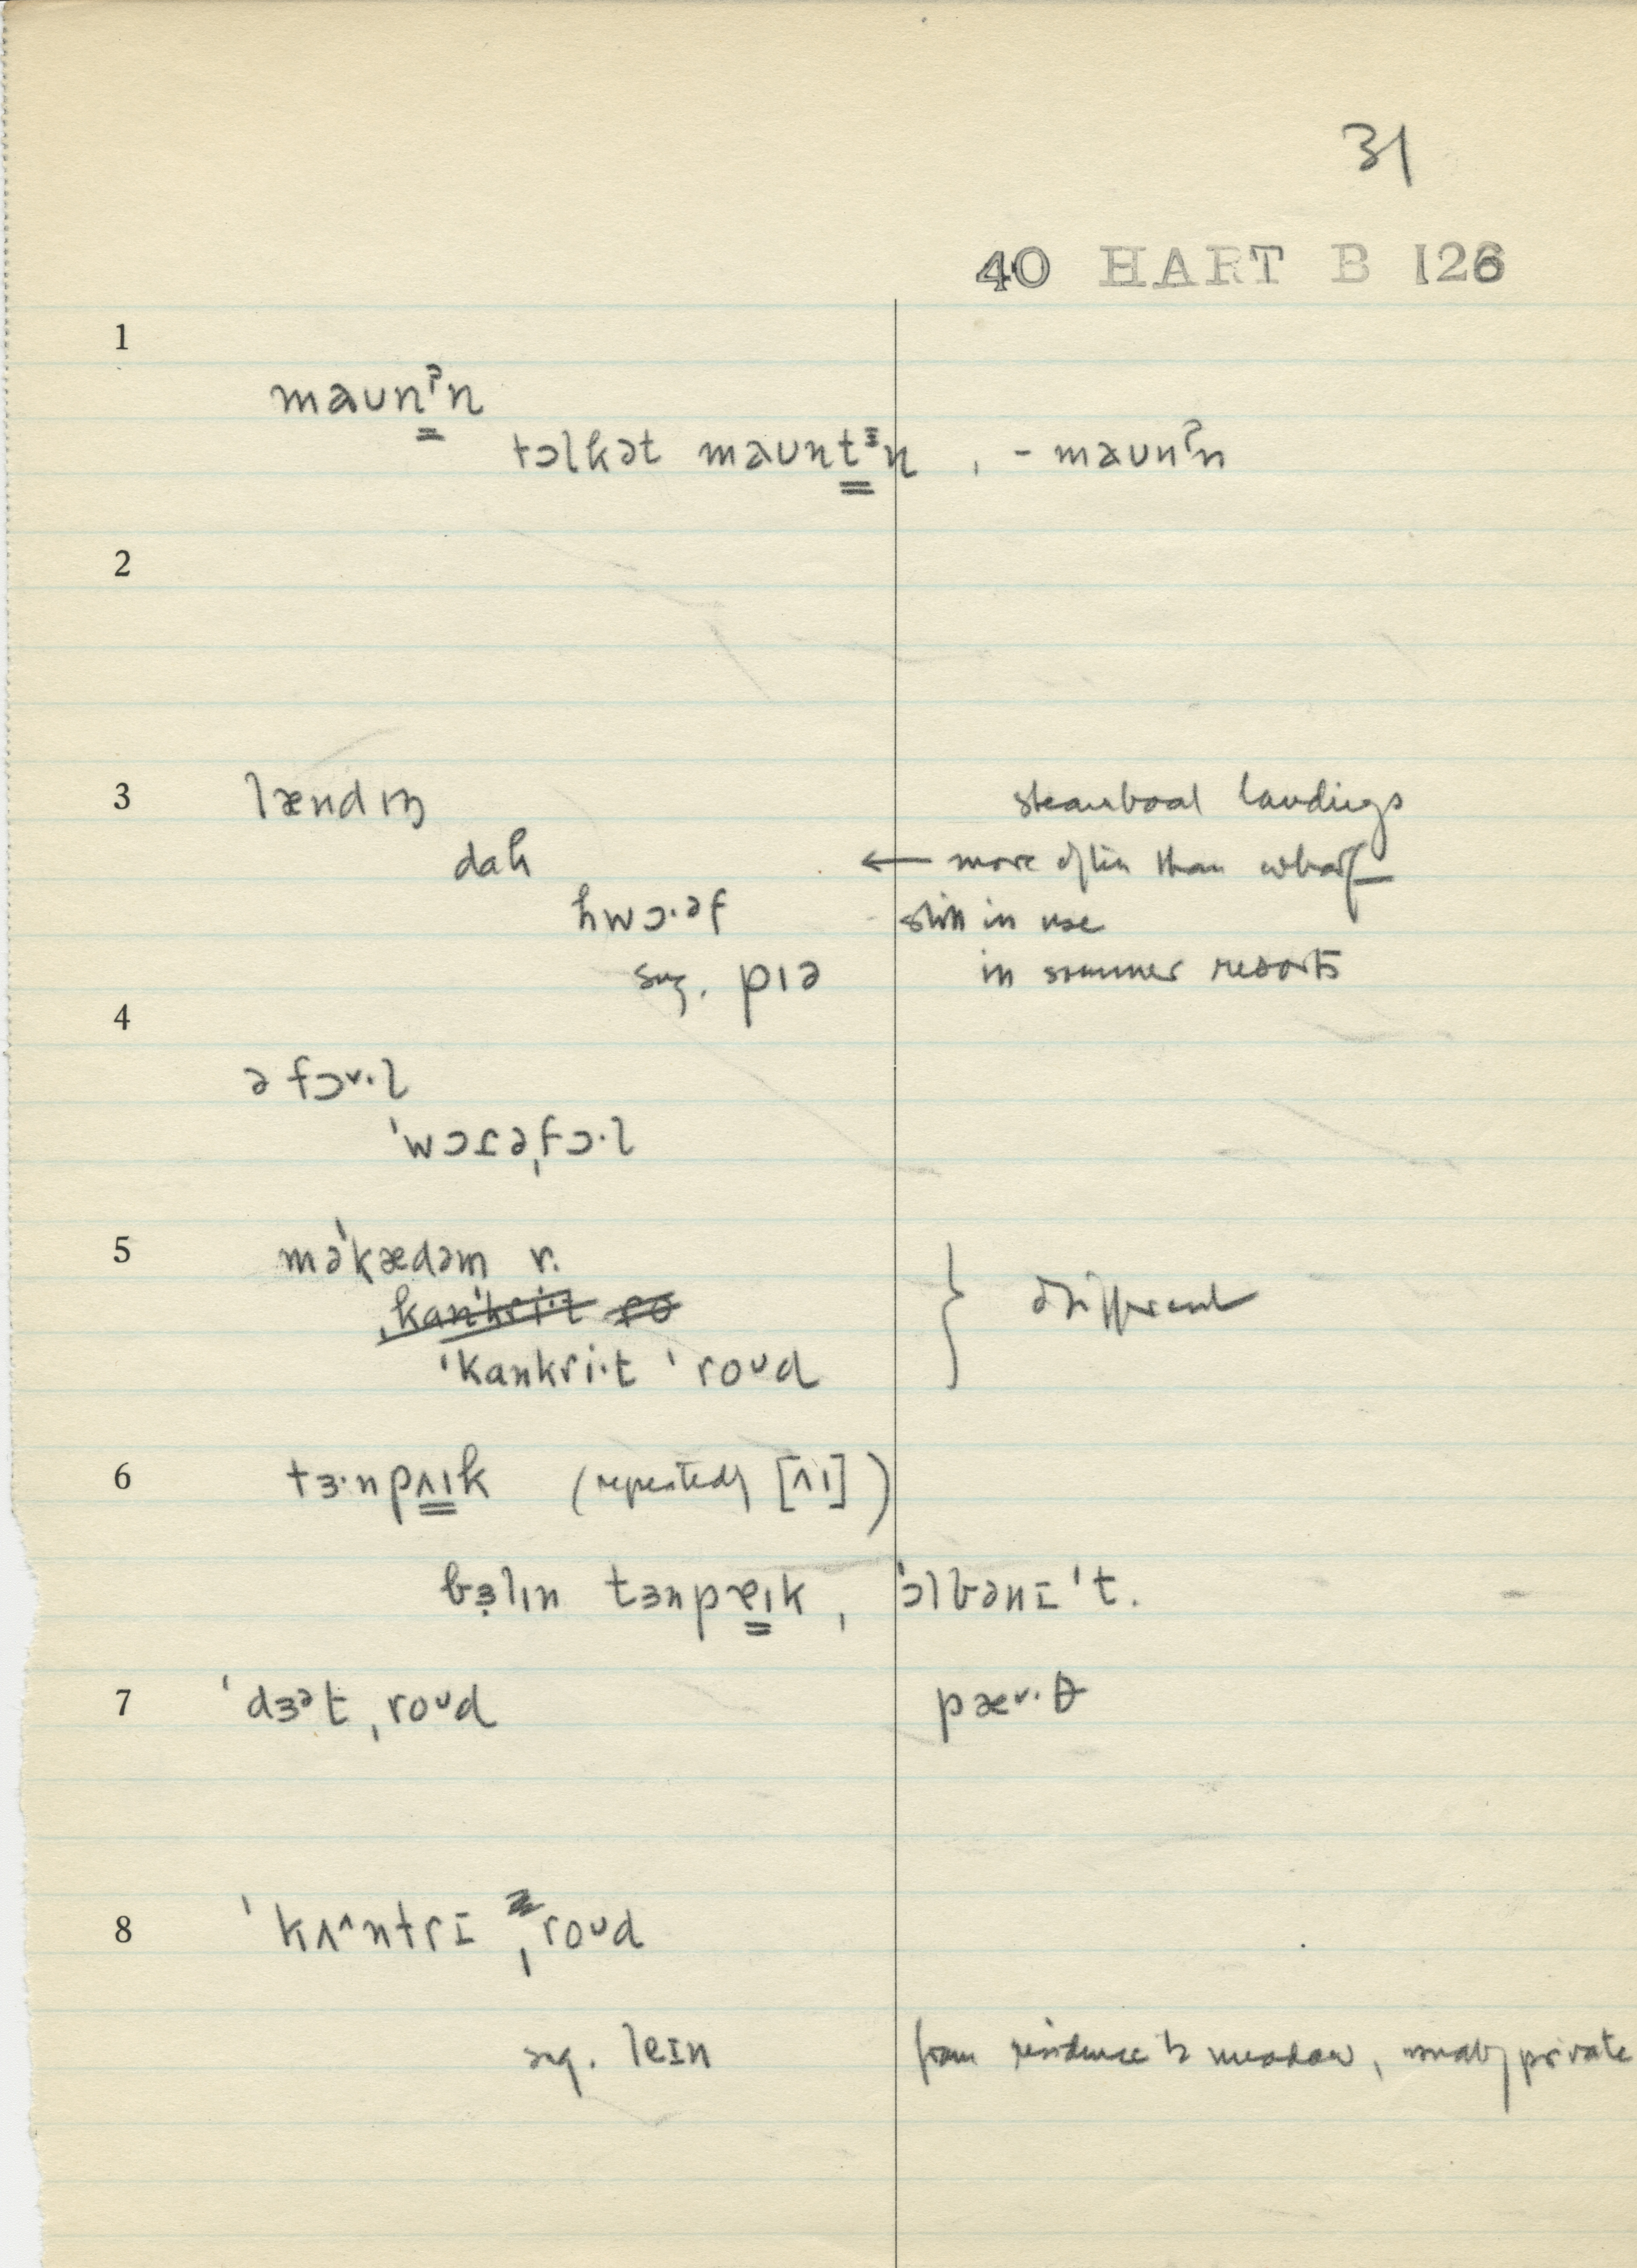 31
40 HART B 126
1
maʊnˀn
tɔlkət maʊntᵻn , - maʊnˀn
2
3 lændɪŋ steamboat landings
dak ← more often than wharf
hwɔ·əf still in use
sug. pɪə in summer resorts
4
ə fɔ˅·l
ˈwɔɾəˌfɔ·l
5 məˈkædəm r. } different
ˌkanˈkri·t ro
ˈkankri·t ˈroᴜd
6 tɜ·npʌɪk (repeatedly [ʌɪ])
bɜ̣lɪn tɜnpɐɪk , ˈɔlbənɪ ˈt.
7 ˈdɜᵊt ˌroᴜd pæ˅·θ
8 ˈkʌ^ntrɪ ˌroᴜd
sug. leɪn from residence to meadow, usually private